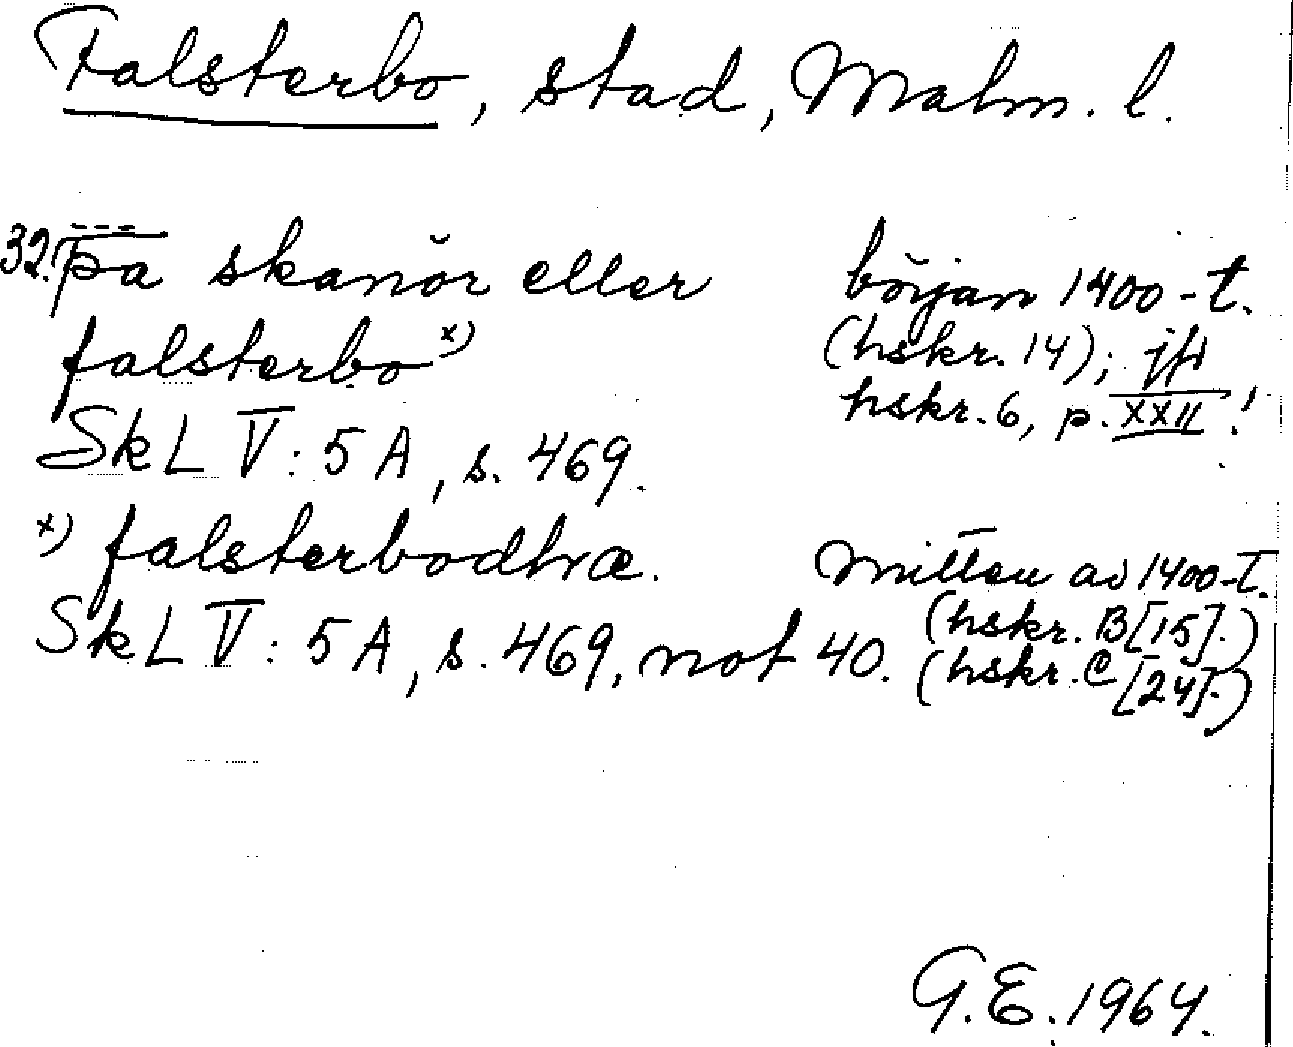 Falsterbo, stad, Malm. l.
32. --- pa skanör eller början 1400-t.
falsterbo x) (hskr. 14); jfr
hskr. 6, p. XXII!
SkL V: 5 A, s. 469.
x) falsterbodhræ. Mitten av 1400-t.
(hskr. B [15].)
SkL V: 5 A, s. 469, not 40. (hskr. C [24].)
G. E. 1964.